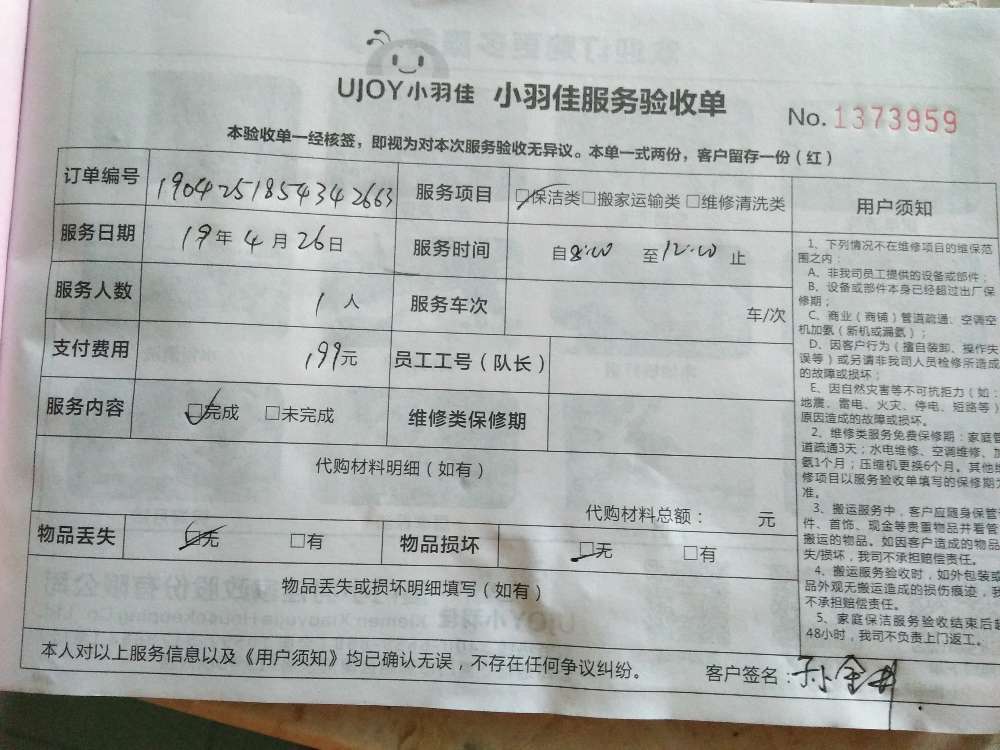 UJOY小羽佳 小羽佳服务验收单
No. 1373959
本验收单一经核签，即视为对本次服务验收无异议。本单一式两份，客户留存一份（红）
订单编号 190425185434 2663 服务项目 □保洁类□搬家运输类 □维修清洗类
服务日期 19年 4 月 26日 服务时间 自8:00 至12:00 止
服务人数 1 人 服务车次 车/次
支付费用 199元 员工工号（队长）
服务内容 □完成 □未完成 维修类保修期
代购材料明细（如有）
代购材料总额： 元
物品丢失 □无 □有 物品损坏 □无 □有
物品丢失或损坏明细填写（如有）
本人对以上服务信息以及《用户须知》均已确认无误，不存在任何争议纠纷。 客户签名：孙金
用户须知
1、下列情况不在维修项目的维保范
围之内：
A、非我司员工提供的设备或部件；
B、设备或部件本身已经超过出厂保
修期；
C、商业（商铺）管道疏通、空调空
机加氨（新机或漏氨）；
D、因客户行为（擅自装卸、操作失
误等）或另请非我司人员检修所造成
的故障或损坏；
E、因自然灾害等不可抗拒力（如：
地震、雷电、火灾、停电、短路等）
原因造成的故障或损坏。
2、维修类服务免费保修期：家庭管
道疏通3天；水电维修、空调维修、加
氨1个月；压缩机更换6个月。其他维
修项目以服务验收单填写的保修期为
准。
3、搬运服务中，客户应随身保管
件、首饰、现金等贵重物品并看管
搬运的物品。如因客户造成的物品
失/损坏，我司不承担赔偿责任。
4、搬运服务验收时，如外包装或
品外观无搬运造成的损伤痕迹，我
不承担赔偿责任。
5、家庭保洁服务验收结束后超
48小时，我司不负责上门返工。